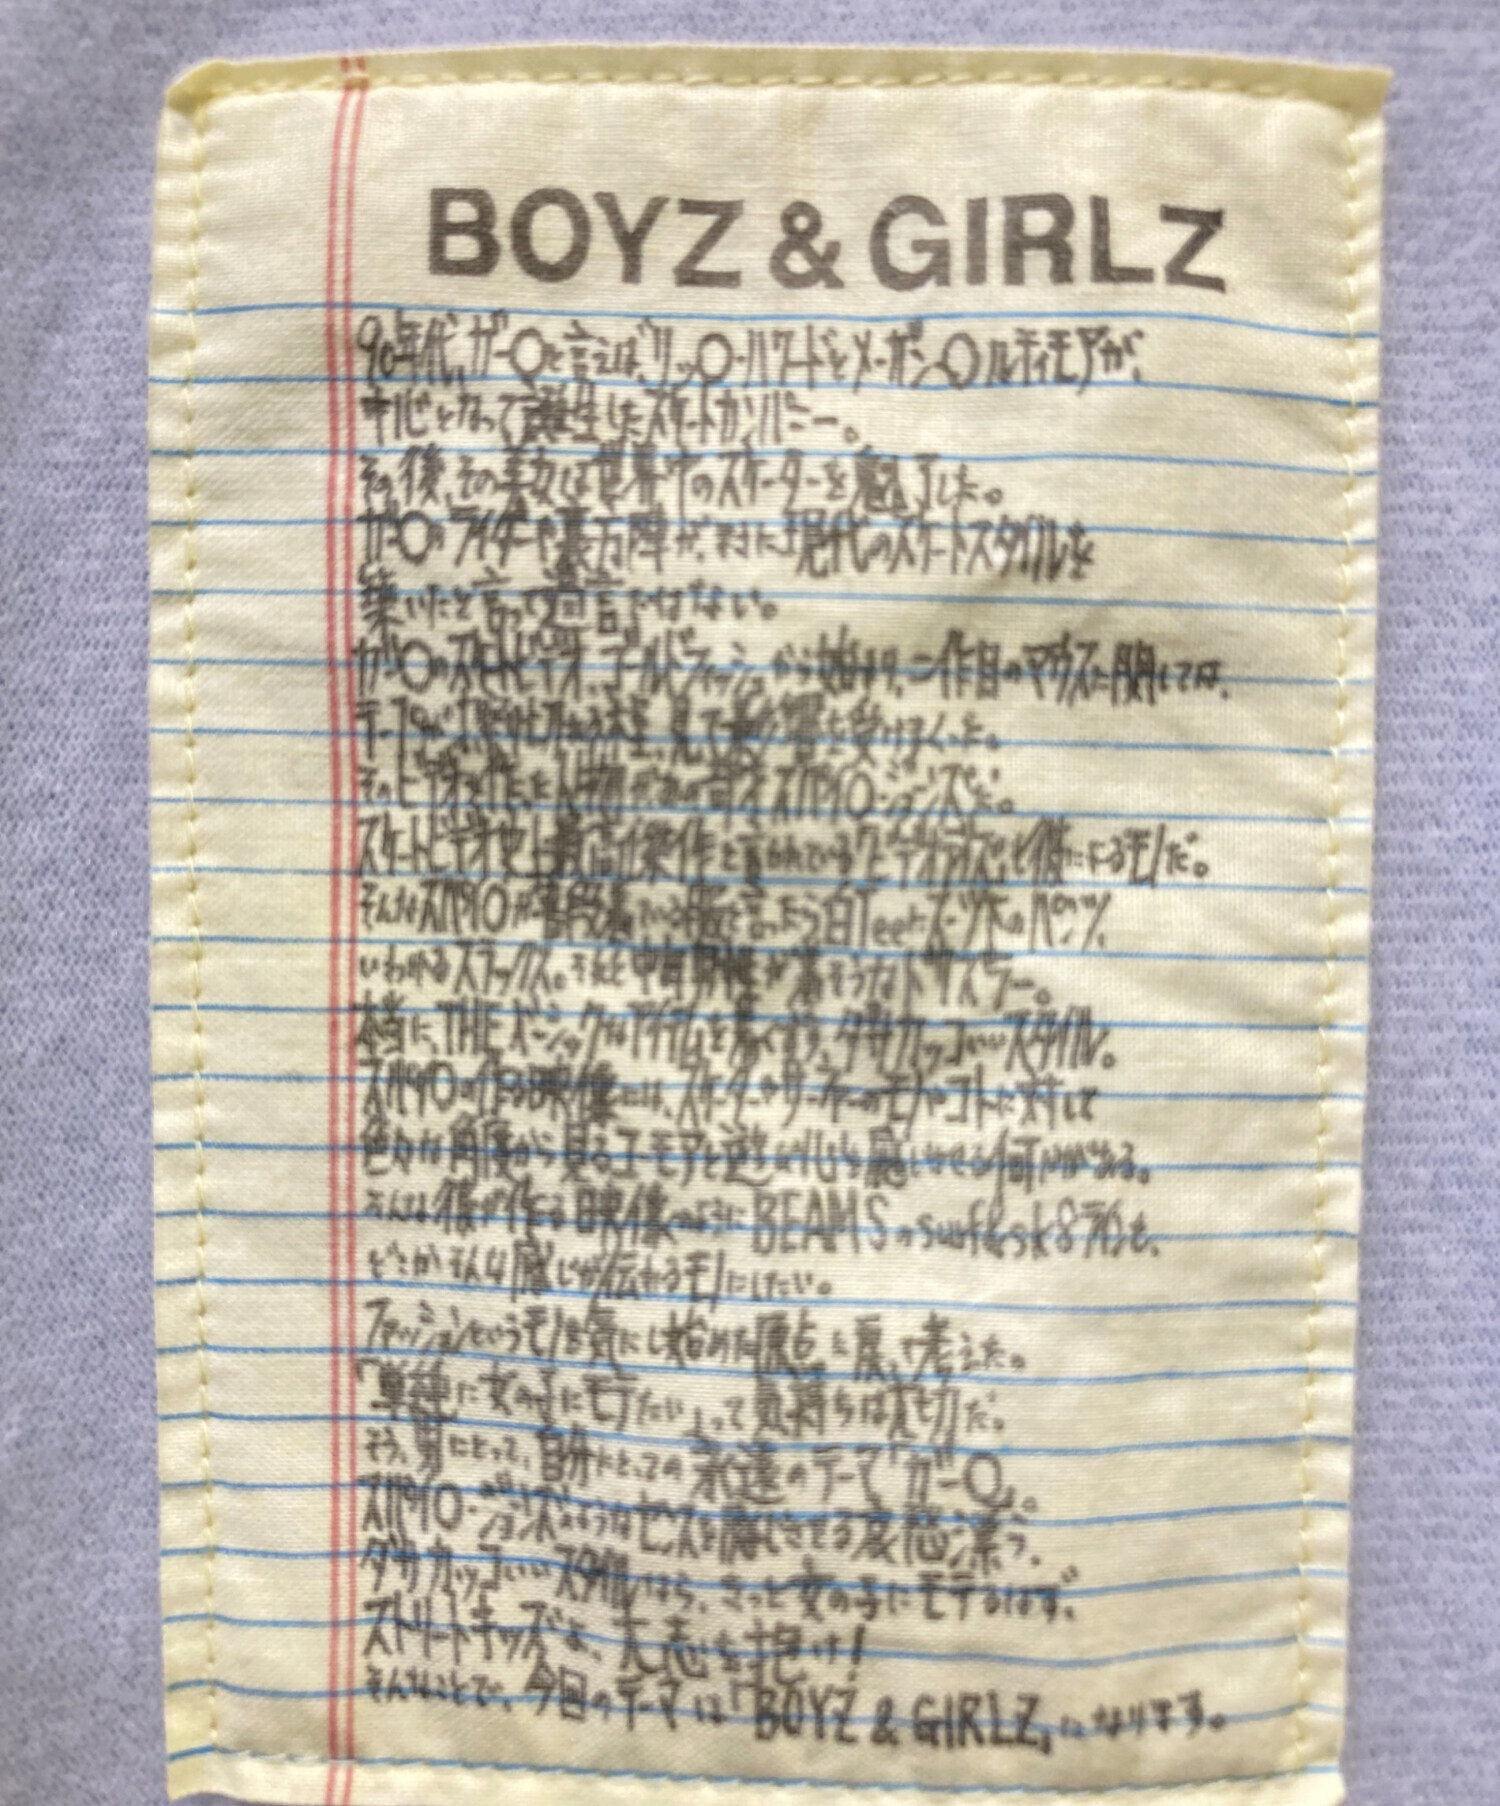 BOYZ & GIRLZ
90年代、ガー〇と言えば、リッ〇・ハワードとメーガン〇ルティモアが、
中心となって誕生したスケートカンパニー。
その後、その美女は世界中のスケーターを魅了した。
ガー〇のライダーや裏方陣が、まさに現代のスケートスタイルを
築いたと言って過言ではない。
ガー〇のスケートビデオ、ゴールドフィッシュから始まり、二作目のマウスに関しては、
テープが見て影響を受けまくった。
そのビデオを作った人物が、スパイク〇・ジョーンズだ。
スケートビデオ史上最高傑作と言われているビデオデイズも彼によるモノだ。
そんなスパイク〇が普段着ている服と言ったら白Teeにスーツ地のパンツ、
いわゆるスラックス。それと中年男性が着そうなトラウザー。
本当に、THEベーシックなアイテムを着くずす、ダサカッコいいスタイル。
スパイク〇の作る映像には、スケーターやサーファーのモノやコトに対して
色々な角度から見るユーモアと遊び心を感じさせる何かがある。
そんな彼が作る映像のようにBEAMSのsurf&sk8ラインも、
どこかそんな感じが伝わるモノにしたい。
ファッションというモノを気にし始めた原点に戻って考えた。
「単純に女の子にモテたい」って気持ちは大切だ。
そう、男にとって、自分にとっての永遠のテーマ「ガー〇」。
スパイク〇・ジョーンズのようなセンスを感じさせる哀愁漂う、
ダサカッコいいスタイルなら、きっと女の子にモテるはず。
ストリートキッズよ、大志を抱け!
そんなことで、今回のテーマは「BOYZ & GIRLZ」になります。